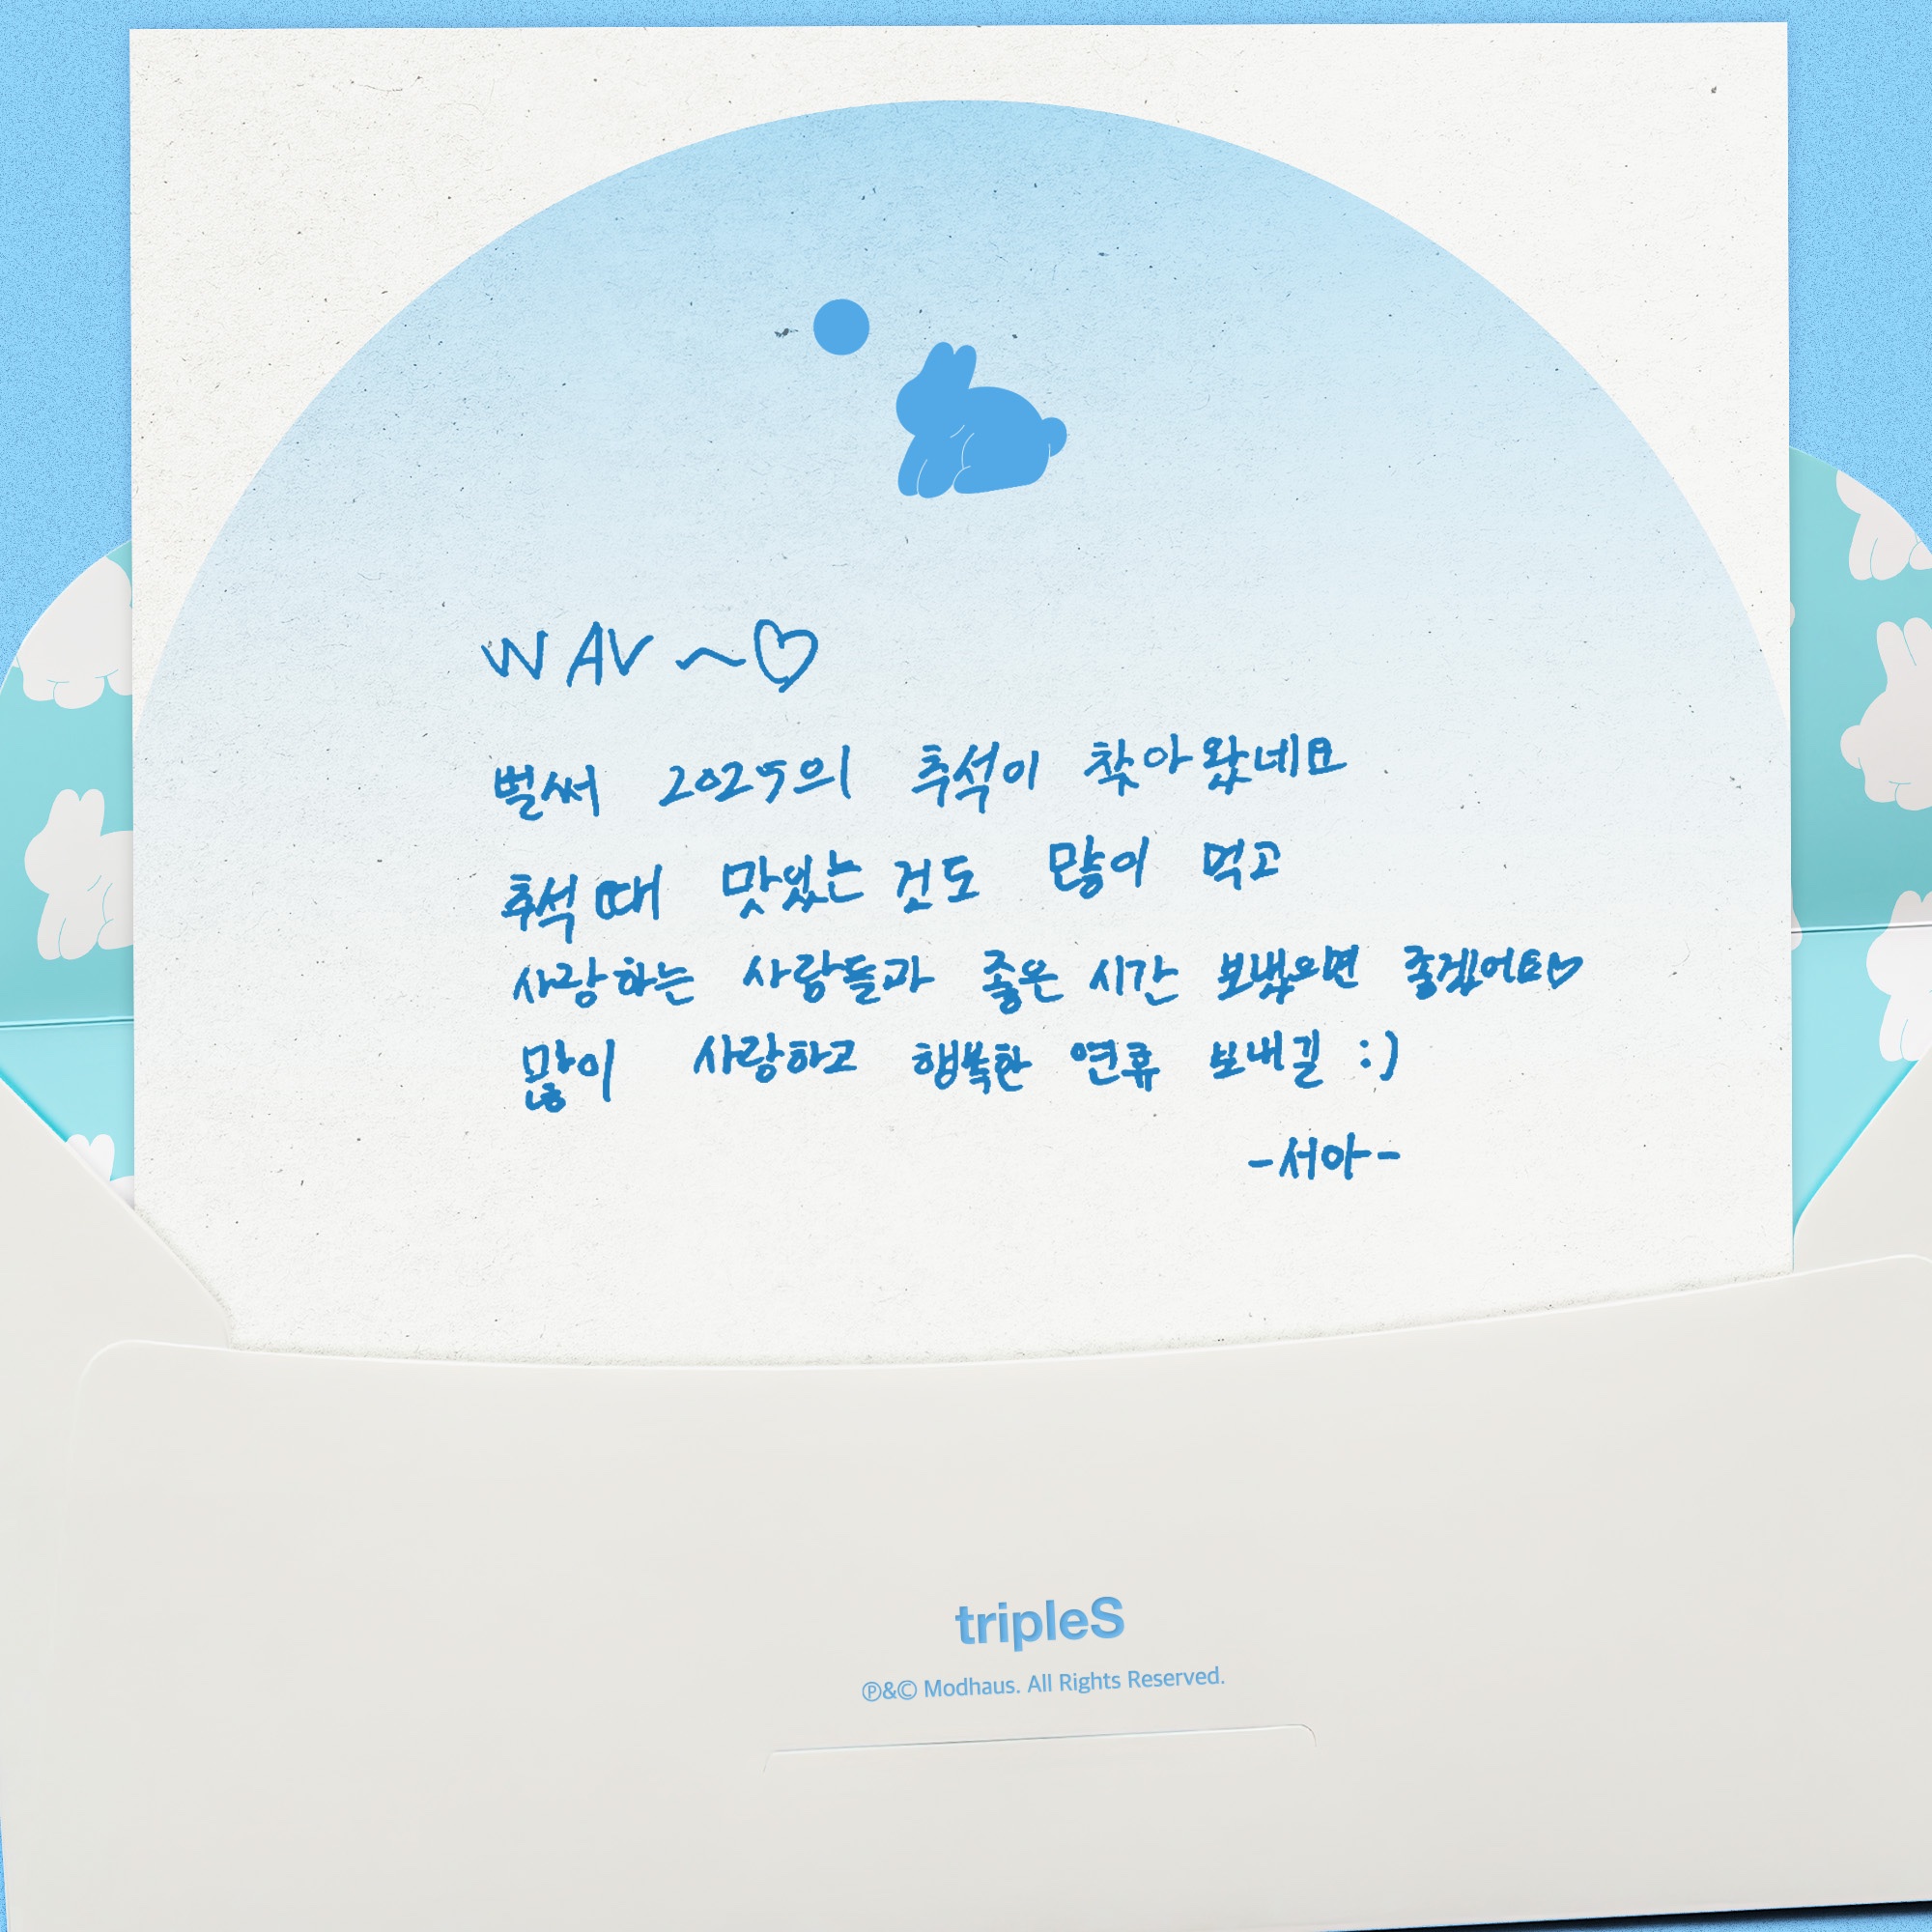 WAV ~♡
벌써 2025의 추석이 찾아왔네요
추석 때 맛있는 것도 많이 먹고
사랑하는 사람들과 좋은 시간 보냈으면 좋겠어요♡
많이 사랑하고 행복한 연휴 보내길 :)
-서아-
tripleS
℗&© Modhaus. All Rights Reserved.